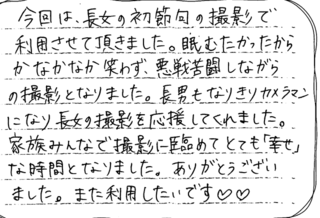 今回は、長女の初節句の撮影で
利用させて頂きました。眠むたかったから
かなかなか笑わず、悪戦苦闘しながら
の撮影となりました。長男もなりきりカメラマン
になり長女の撮影を応援してくれました。
家族みんなで撮影に臨めてとても「幸せ」
な時間となりました。ありがとうござい
ました。また利用したいです♡♡